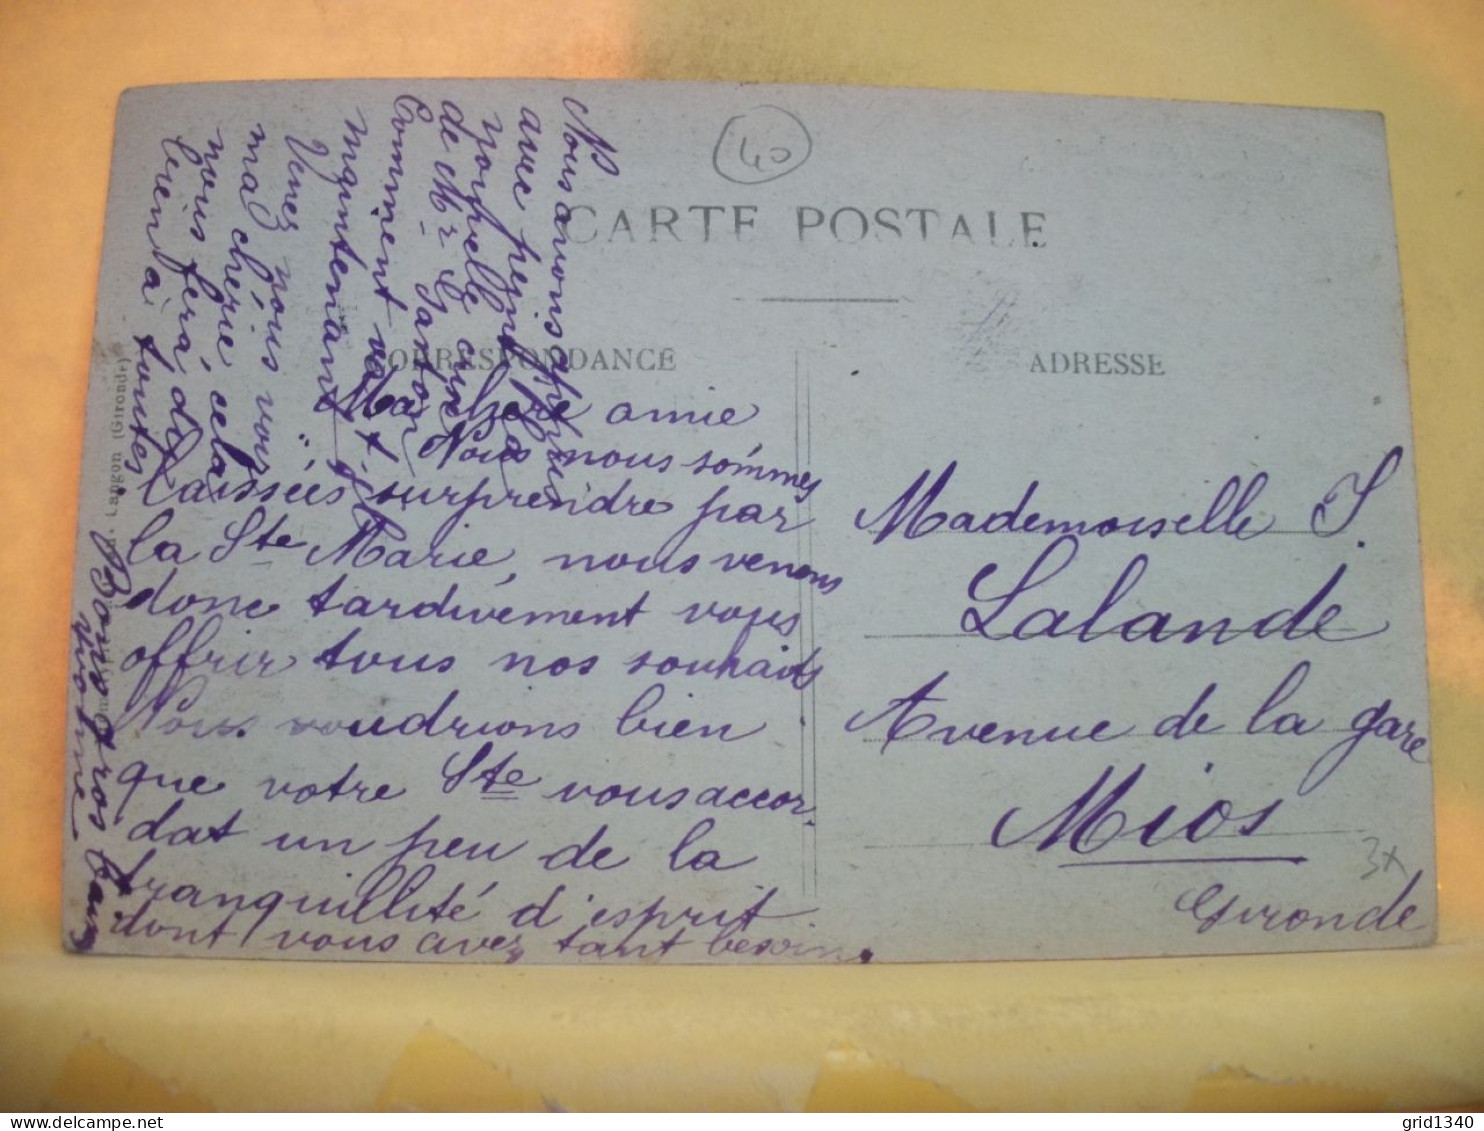 40
CARTE POSTALE
CORRESPONDANCE
ADRESSE
Ma chère amie
Nous nous sommes
laissées surprendre par
la Ste Marie, nous venons
donc tardivement vous
offrir tous nos souhaits
Nous voudrions bien
que votre Ste vous accor-
dat un peu de la
tranquillité d'esprit
dont vous avez tant besoin.
Nous avons appris
avec peine la
de Mr G
Comment va-t-il
maintenant
Venez nous voir
ma chérie cela
nous fera du
bien à toutes
Bons gros
Langon (Gironde)
Mademoiselle J.
Lalande
Avenue de la gare
Mios
Gironde
3x
grid1340